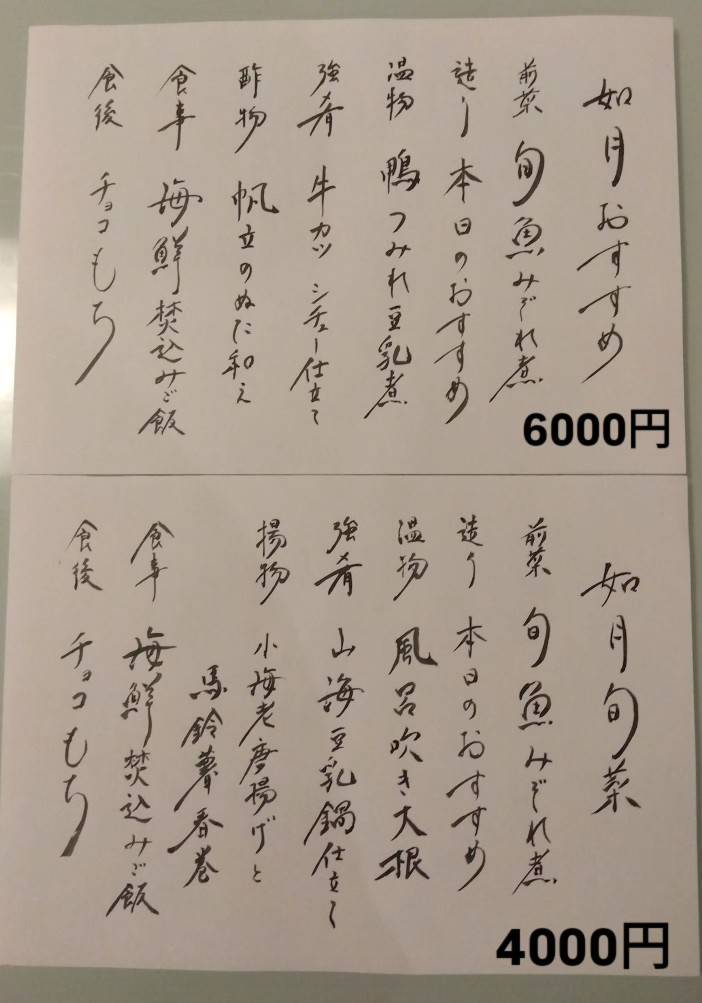 如月おすすめ
前菜 旬魚みぞれ煮
造り 本日のおすすめ
温物 鴨つみれ豆乳煮
強肴 牛カツ シチュー仕立て
酢物 帆立のぬた和え
食事 海鮮焚込みご飯
食後 チョコもち
6000円
如月旬菜
前菜 旬魚みぞれ煮
造り 本日のおすすめ
温物 風呂吹き大根
強肴 山海豆乳鍋仕立て
揚物 小海老唐揚げと
馬鈴薯春巻
食事 海鮮焚込みご飯
食後 チョコもち
4000円